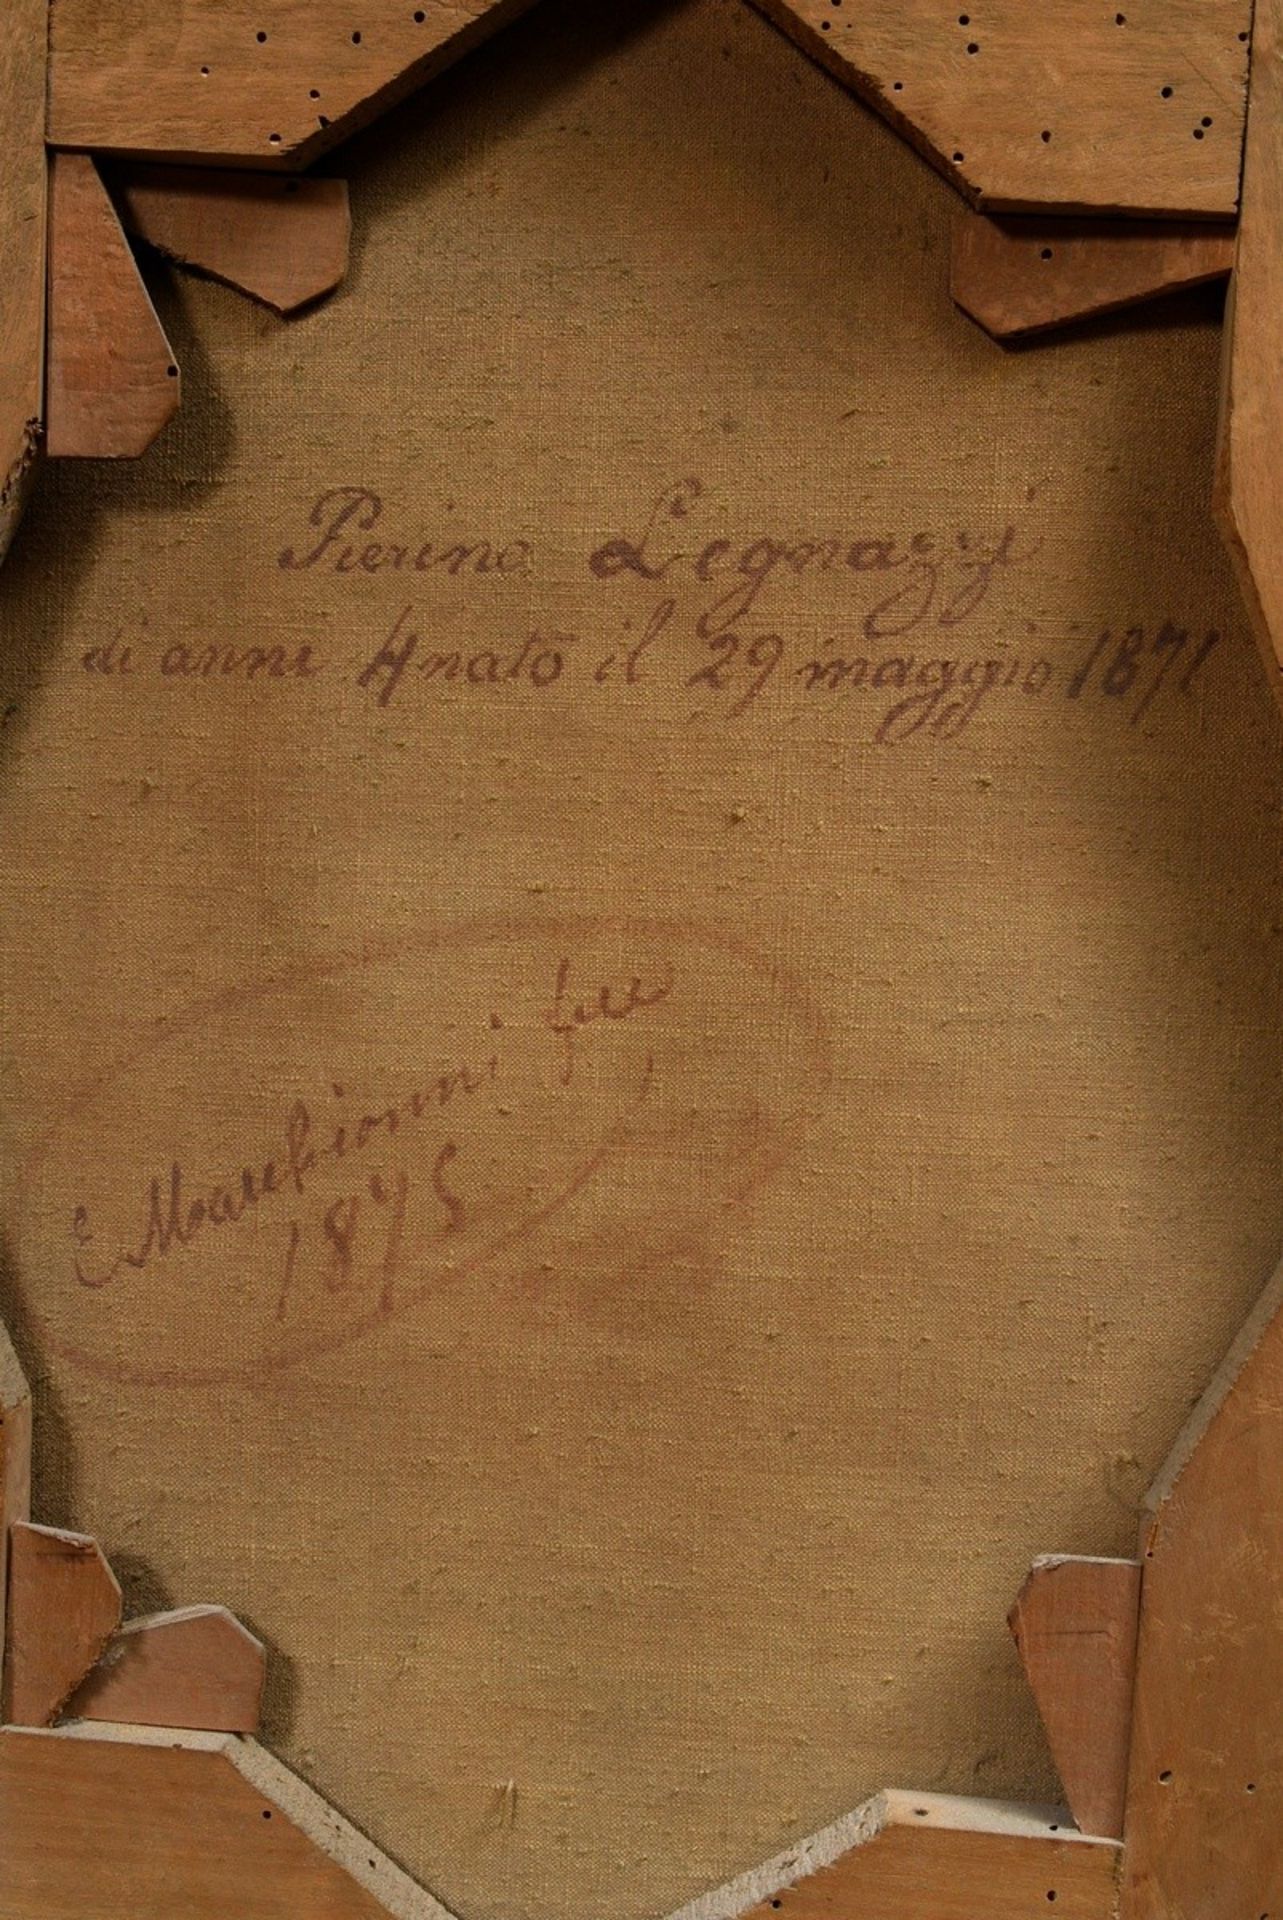 Pierino Legnazzi
di anni 4 nato il 29 maggio 1871
E Marchionni fece
1875